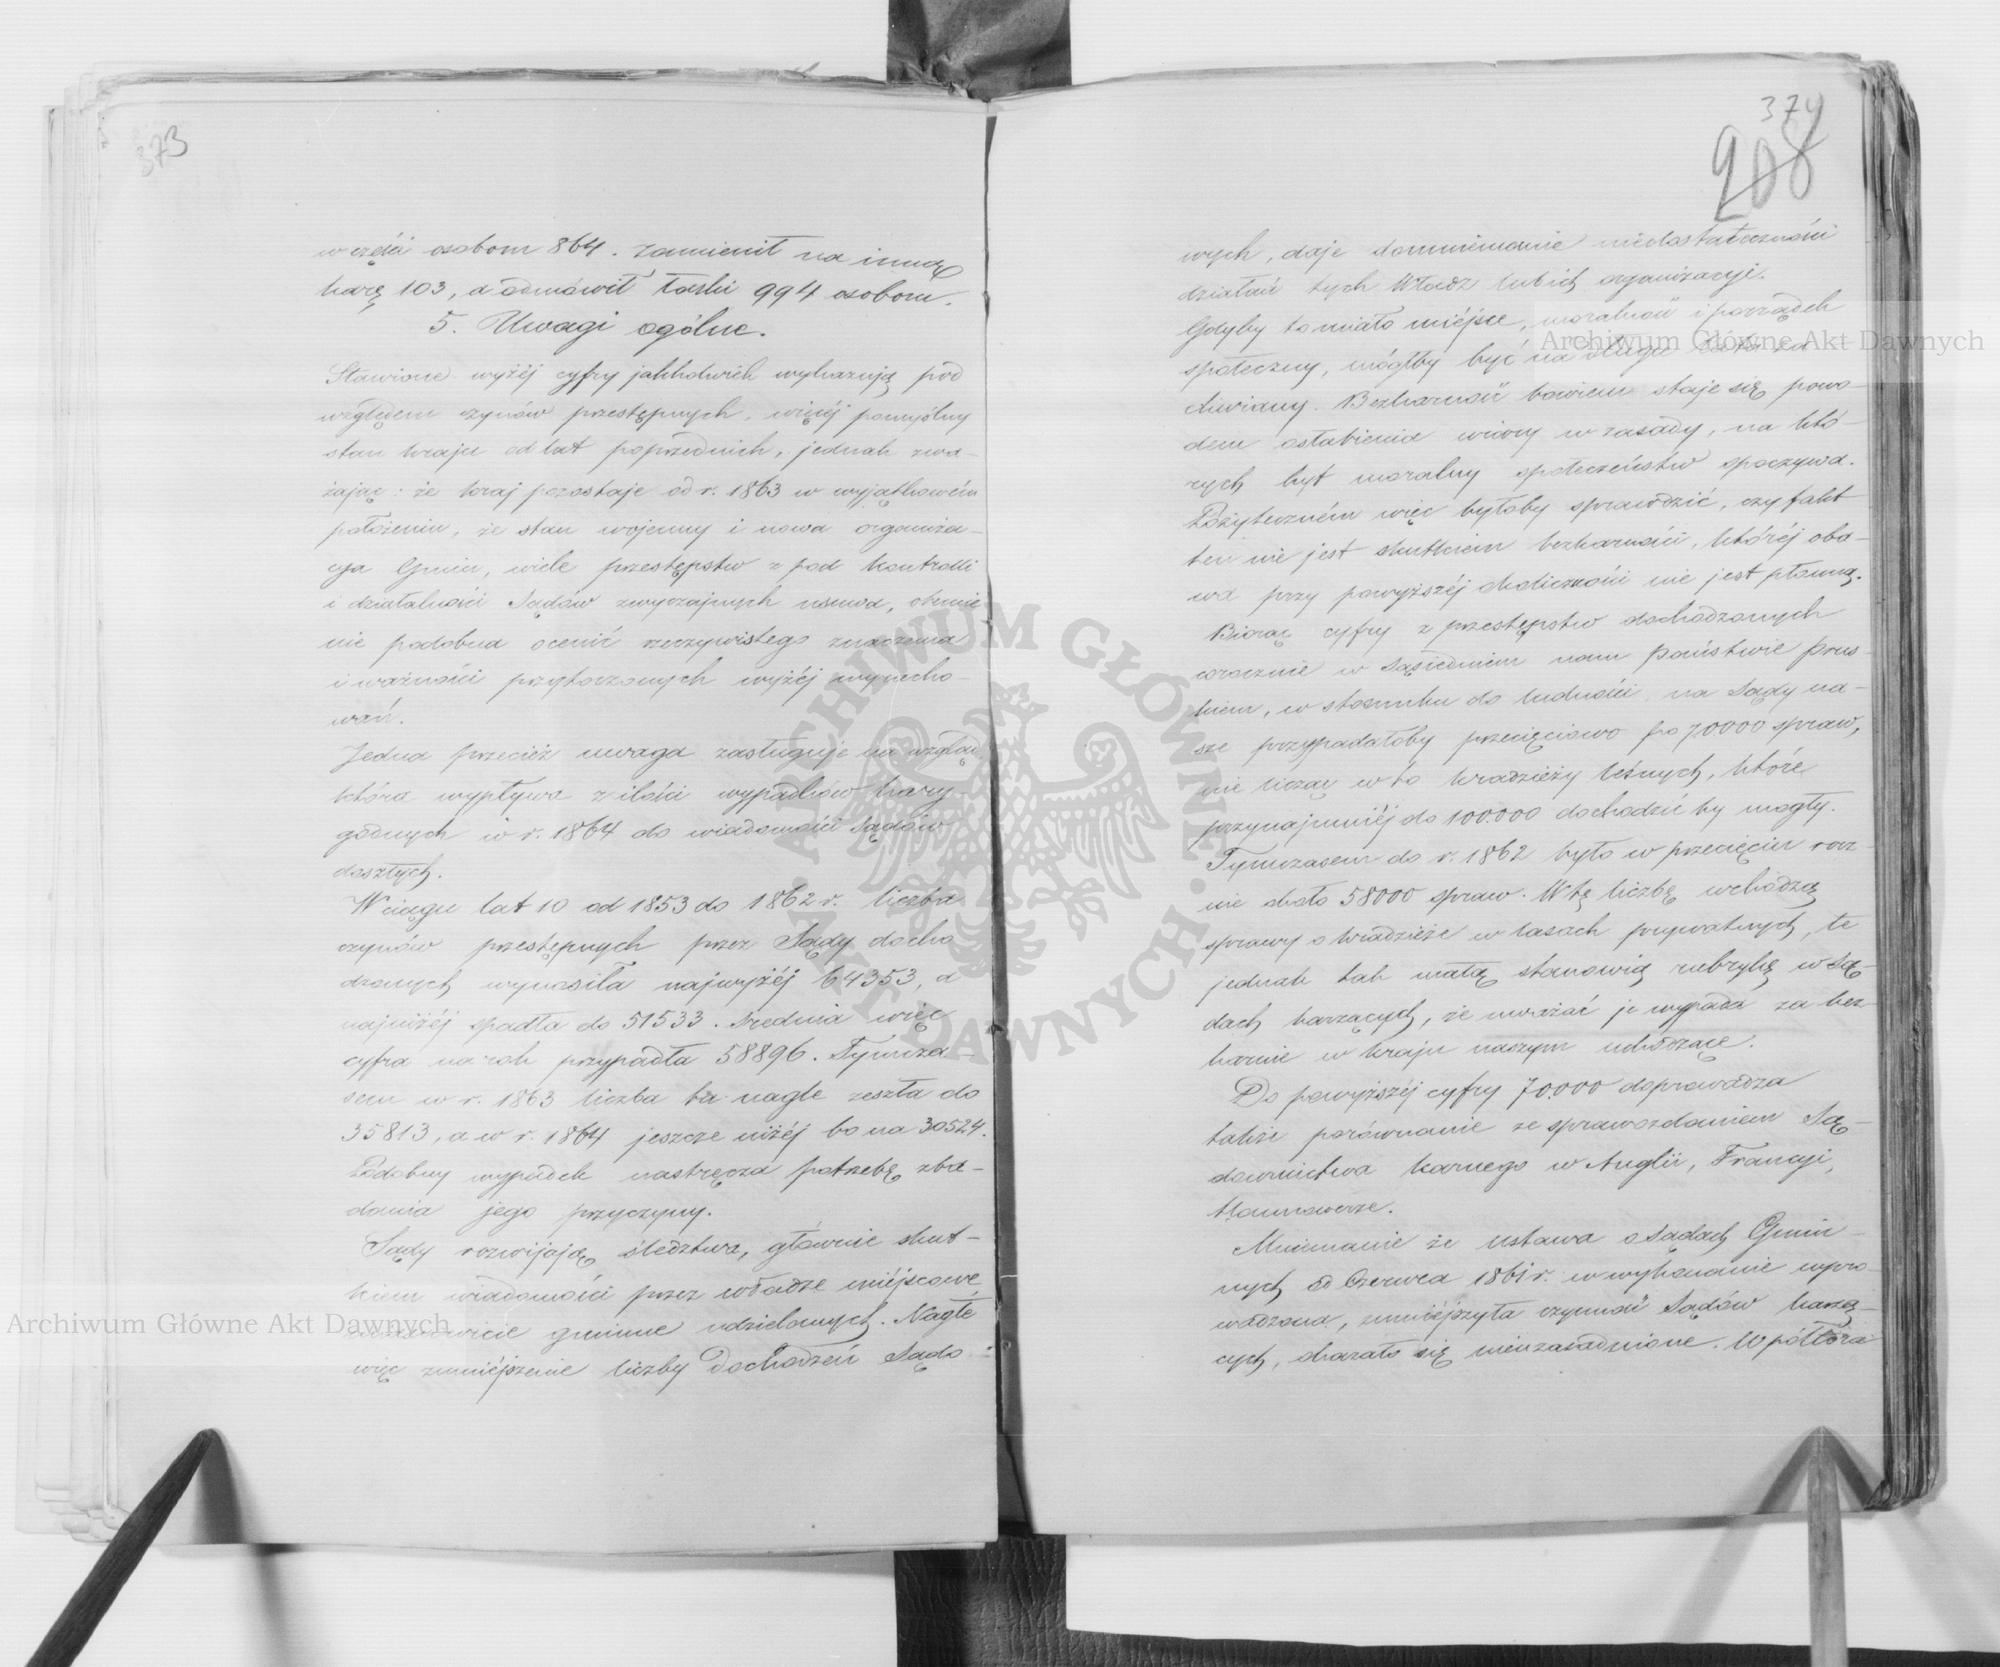 373
w części osobom 864. zamienił na inną
karę 103, a odmówił łaski 994 osobom.
5. Uwagi ogólne.
Stawione wyżéj cyfry jakkolwiek wykazują pod
względem czynów przestępnych, więcéj pomyślny
stan kraju od lat poprzednich, jednak zwa-
żając: że kraj pozostaje od r. 1863 w wyjątkowém
położeniu, że stan wojenny i nowa organiza-
cya Gmin, wiele przestępstw z pod kontrolli
i działalności Sądów zwyczajnych usuwa,
nie podobna ocenić rzeczywistego znaczenia
i ważności przytoczonych wyżéj wyracho-
wań.
Jedna przecież uwaga zasługuje na wzgląd
która wypływa z ilości wypadków kary
godnych w r. 1864 do wiadomości Sądów
doszłych.
W ciągu lat 10 od 1853 do 1862 r. liczba
czynów przestępnych przez Sądy docho
dzonych wynosiła najwyżéj 64353, a
najniżéj spadła do 51533. Średnia więc
cyfra na rok przypadła 58896. Tymcza-
sem w r. 1863 liczba ta nagle zeszła do
35813, a w r. 1864 jeszcze niżéj bo na 30524.
Podobny wypadek nastręcza potrzebę zba-
dania jego przyczyny.
Sądy rozwijają śledztwa, głównie skut-
kiem wiadomości przez władze miejscowe
mianowicie gminne udzielonych. Nagłe
więc zmniéjszenie liczby dochodzeń Sądo-
374
208
wych, daje domniemanie niedostateczności
działań tych Władz lub ich organizacyi.
Gdyby to miało miéjsce, moralność i porządek
społeczny, mógłby być na długie lata za
chwiany. Bezkarność bowiem staje się powo-
dem osłabienia wiary w zasady, na któ-
rych byt moralny społeczeństw spoczywa.
Pożyteczném więc byłoby sprawdzić, czy fakt
ten nie jest skutkiem bezkarności, któréj oba-
wa przy powyższéj okoliczności nie jest płonną.
Biorąc cyfry z przestępstw dochodzonych
corocznie w sąsiedniem nam państwie prus-
kiem, w stosunku do ludności na Sądy na-
sze przypadałoby przecięciowo po 70000 spraw,
nie licząc w to kradzieży leśnych, które
przynajmniéj do 100.000 dochodzić by mogły.
Tymczasem do r. 1862 było w przecięciu rocz
nie około 58000 spraw. W tę liczbę wchodzą
sprawy o kradzieże w lasach prywatnych, te
jednak tak małą stanowią rubrykę w Są-
dach karzących, że uważać je wypada za bez-
karnie w kraju naszym uchodzące.
Do powyższéj cyfry 70.000 doprowadza
także porównanie ze sprawozdaniem Są-
downictwa karnego w Anglii, Francyi,
Hannowerze.
Mniemanie że ustawa o Sądach Gmin-
nych od Czerwca 1861 r. w wykonanie wpro-
wadzona, zmniéjszyła czynność Sądów karzą-
cych, okazało się nieuzasadnione. W półtora
Archiwum Główne Akt Dawnych
Archiwum Główne Akt Dawnych
ARCHIWUM GŁÓWNE AKT DAWNYCH